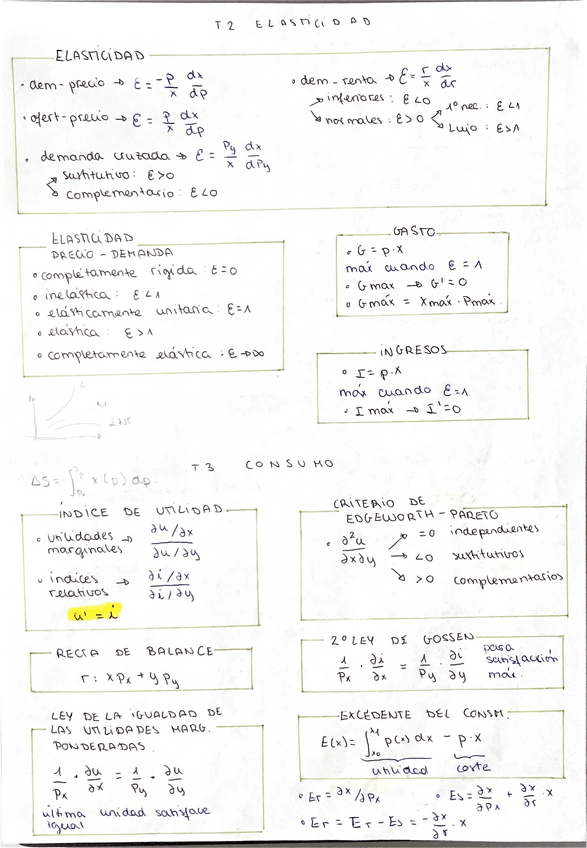 T.2 ELASTICIDAD
ELASTICIDAD
• dem-precio → ε = -p/x dx/dp
• ofert-precio → ε = p/x dx/dp
• demanda cruzada → ε = Py/x dx/dPy
sustitutivo: ε>0
complementario: ε<0
• dem-renta → ε = r/x dx/dr
inferiores: ε<0
normales: ε>0
1º nec.: ε<1
Lujo: ε>1
ELASTICIDAD
PRECIO-DEMANDA
• complétamente rígida: ε=0
• inelástica: ε<1
• elásticamente unitaria: ε=1
• elástica: ε>1
• completamente elástica: ε→∞
GASTO
• G = p·x
máx cuando ε = 1
• G max → G'=0
• G máx = Xmáx · Pmáx.
INGRESOS
• I = p·x
máx cuando ε=1
• I máx → I'=0
T.3 CONSUMO
ΔS = ∫ x(p) dp
ÍNDICE DE UTILIDAD
• utilidades marginales → ∂u/∂x / ∂u/∂y
• índices relativos → ∂i/∂x / ∂i/∂y
u' = i
CRITERIO DE
EDGEWORTH-PARETO
• ∂²u/∂x∂y
=0 independientes
<0 sustitutivos
>0 complementarios
RECTA DE BALANCE
r: xPx + yPy
2º LEY DE GOSSEN
1/Px · ∂i/∂x = 1/Py · ∂i/∂y
para
satisfacción
máx.
LEY DE LA IGUALDAD DE
LAS UTILIDADES MARG.
PONDERADAS.
1/Px · ∂u/∂x = 1/Py · ∂u/∂y
última unidad satisface
igual
EXCEDENTE DEL CONSM.
E(x) = ∫ p(x) dx - p·x
utilidad coste
• Er = ∂x/∂Px
• Es = ∂x/∂Px + ∂x/∂r · x
• Er = Er - Es = -∂x/∂r · x